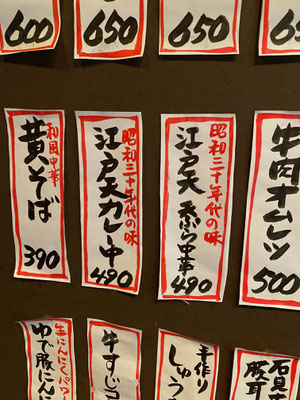 600
650
650
65
和風中華
黄そば
390
昭和三十年代の味
江戸天カレー中
490
昭和三十年代の味
江戸天 天ぷら中華
490
牛肉オムレツ
500
生にんにくパワー
ゆで豚にんに
牛すじコ
手作り
しゅう
豚耳